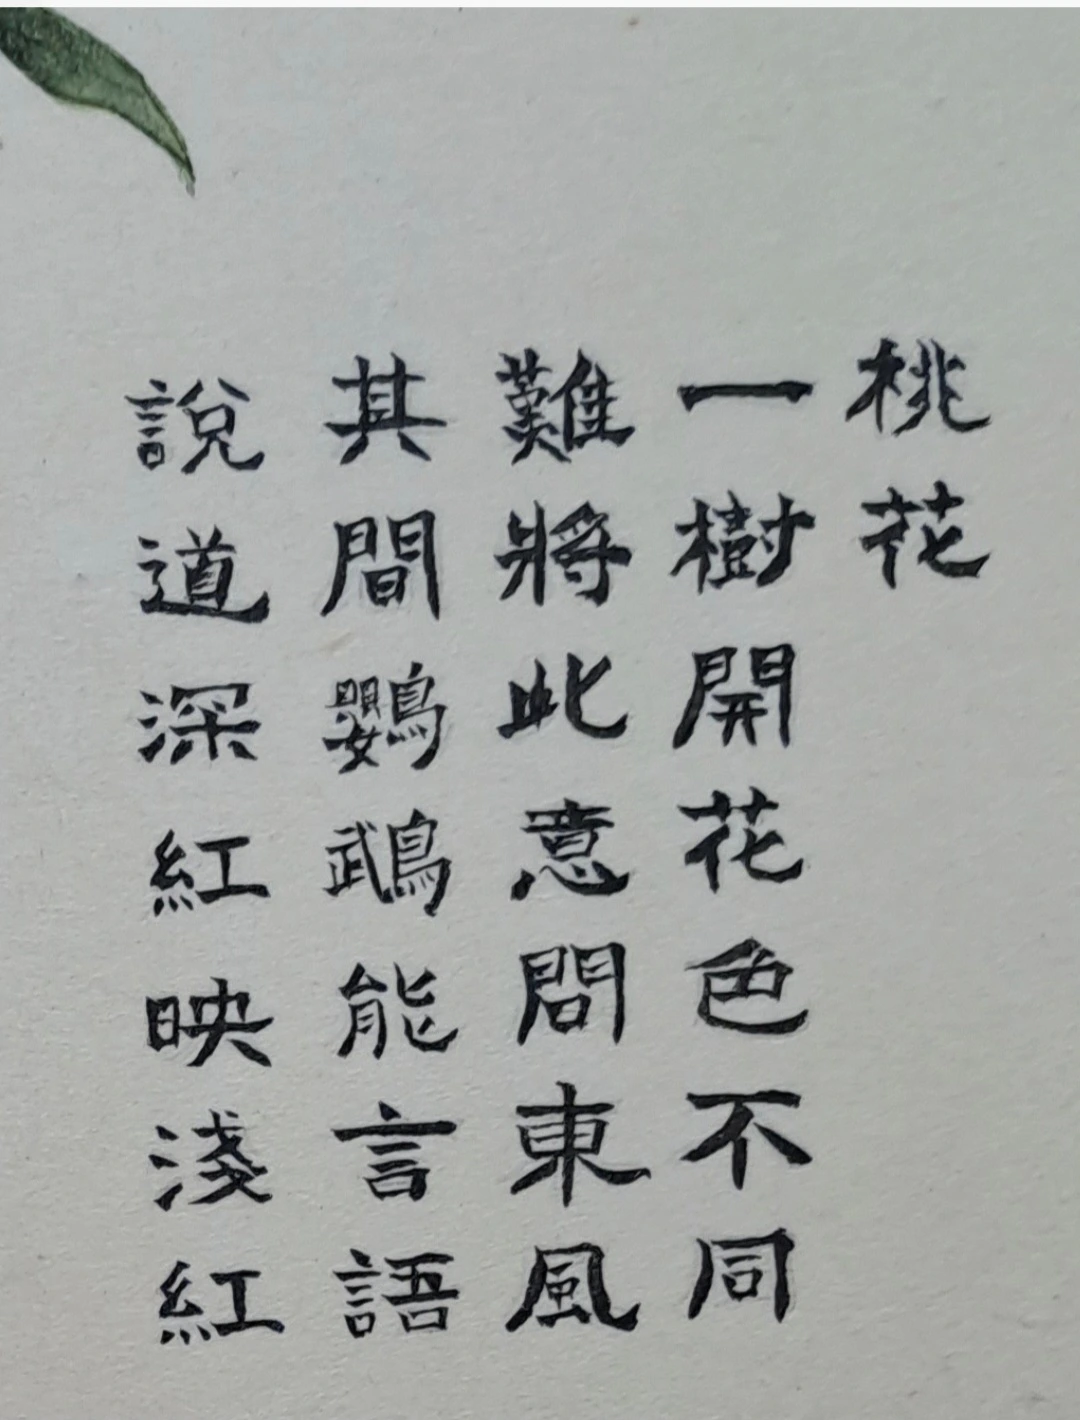 桃花
一樹開花色不同
難將此意問東風
其間鸚鵡能言語
說道深紅映淺紅